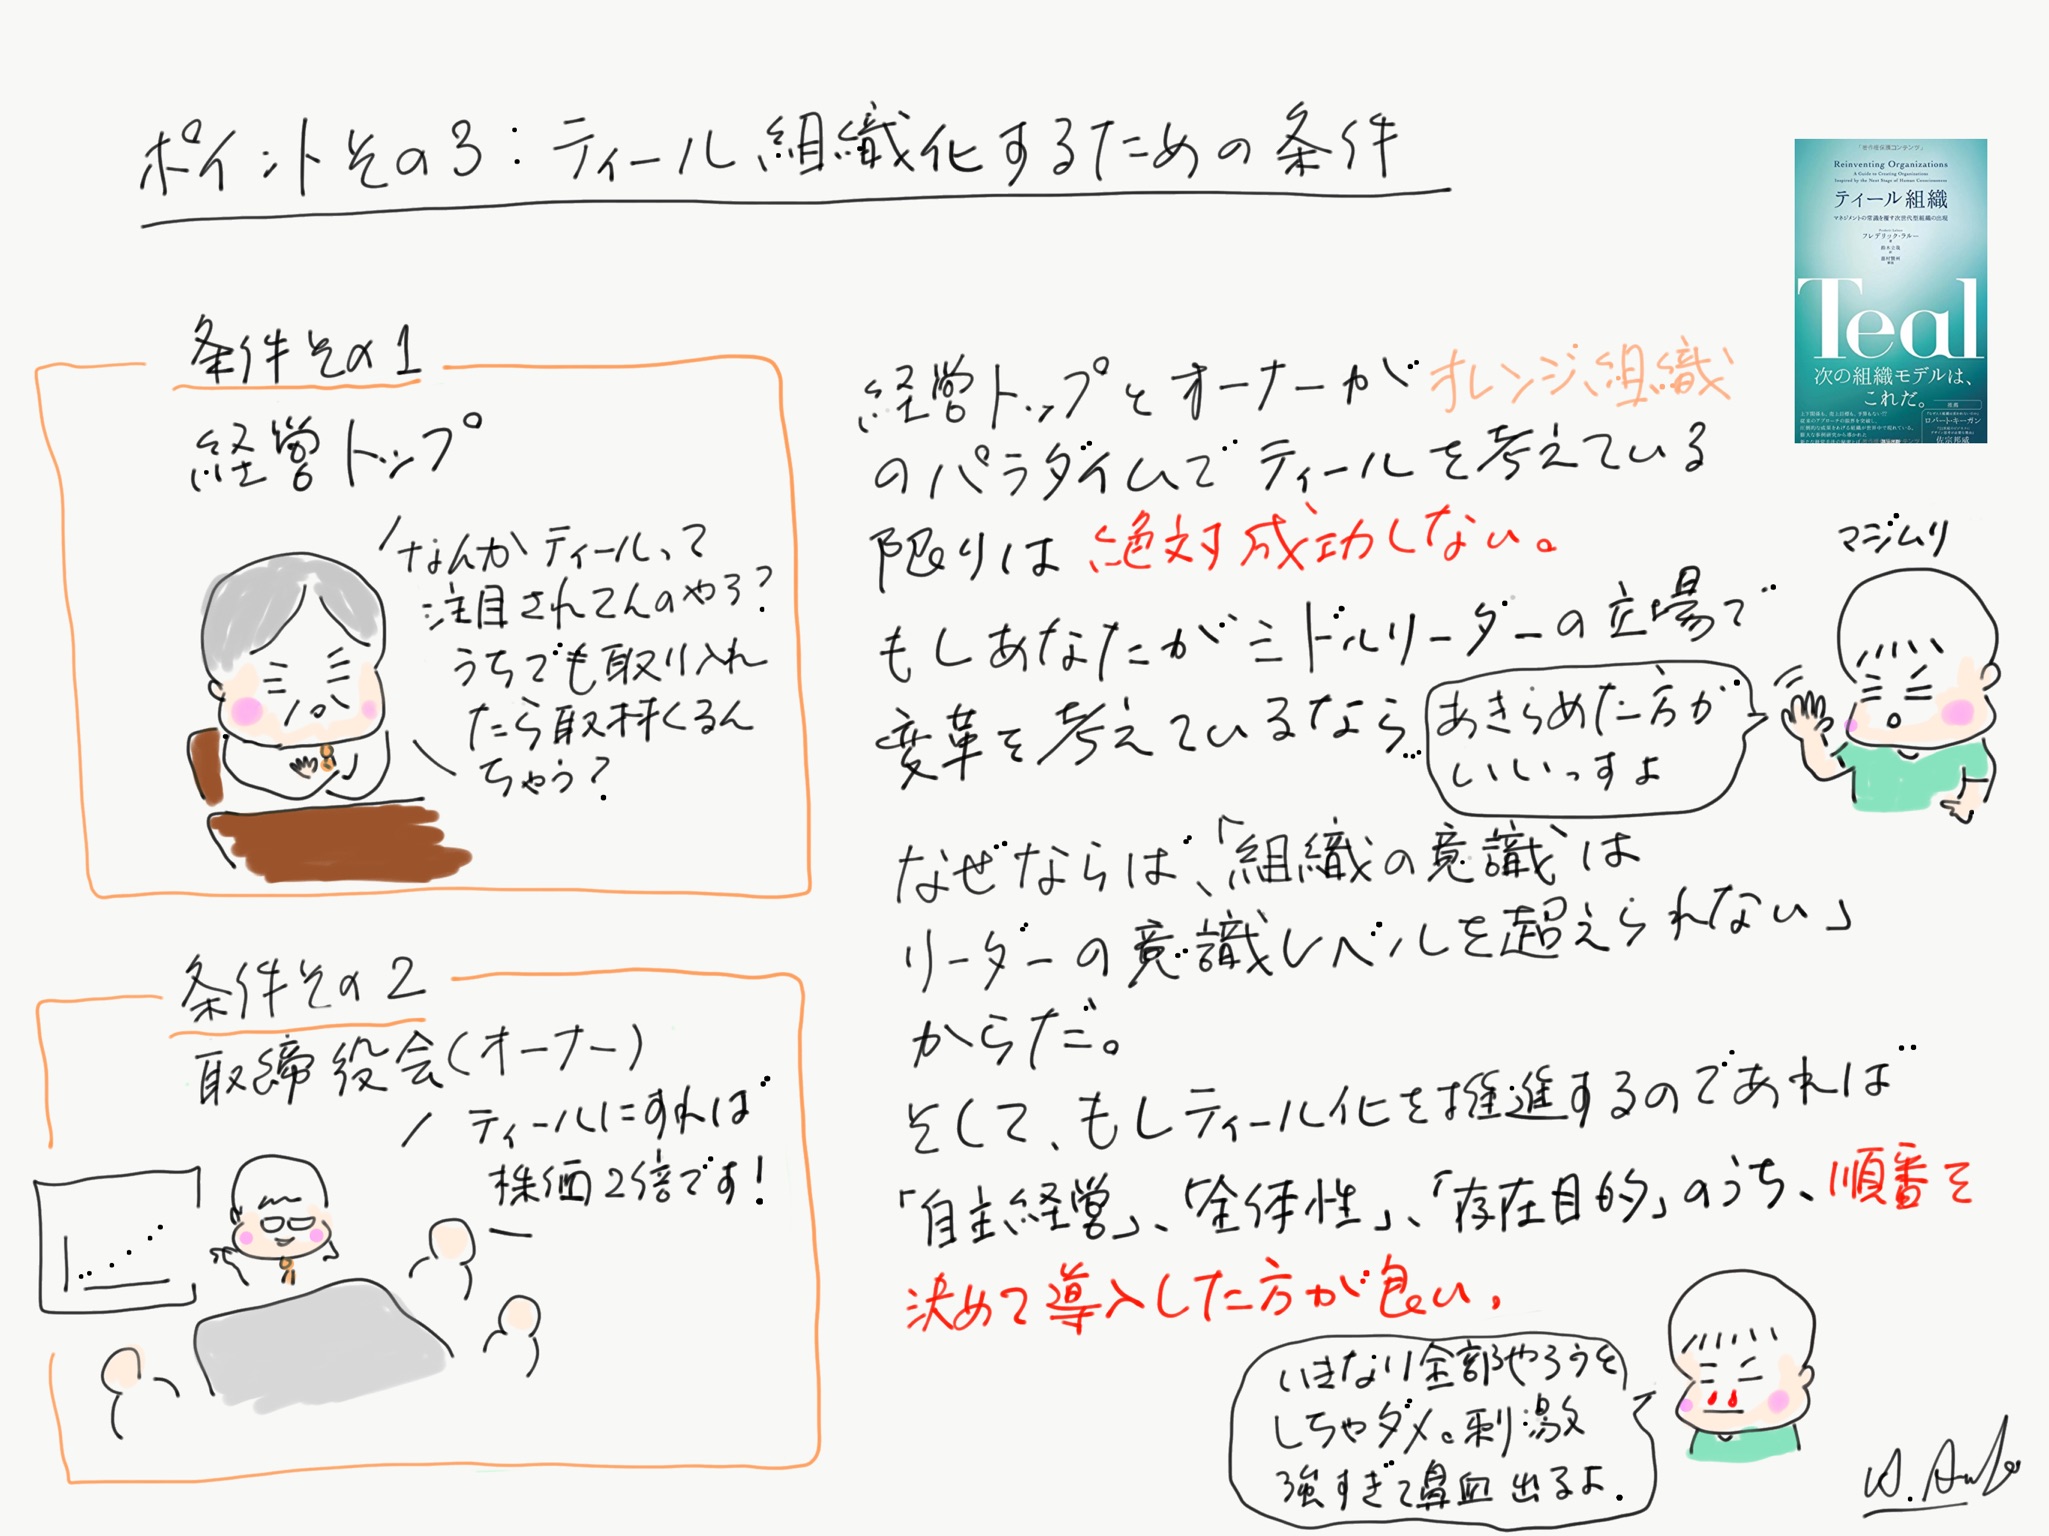 ポイントその3:ティール組織化するための条件
「著作権保護コンテンツ」
Reinventing Organizations
A Guide to Creating Organizations
Inspired by the Next Stage of Human Consciousness
ティール組織
マネジメントの常識を覆す次世代型組織の出現
フレデリック・ラルー
Teal
次の組織モデルは、
これだ。
ロバート・キーガン
佐宗邦威
条件その1
経営トップ
なんかティールって
注目されてんのやろ?
うちでも取り入れ
たら取材くるん
ちゃう?
条件その2
取締役会(オーナー)
ティールにすれば
株価2倍です!
経営トップとオーナーがオレンジ組織
のパラダイムでティールを考えている
限りは絶対成功しない。
もしあなたがミドルリーダーの立場で
変革を考えているなら…
マジムリ
あきらめた方が
いいっすよ
なぜならば、「組織の意識は
リーダーの意識レベルを超えられない」
からだ。
そして、もしティール化を推進するのであれば
「自主経営」、「全体性」、「存在目的」のうち、順番を
決めて導入した方が良い。
いきなり全部やろうと
しちゃダメ。刺激
強すぎて鼻血出るよ.